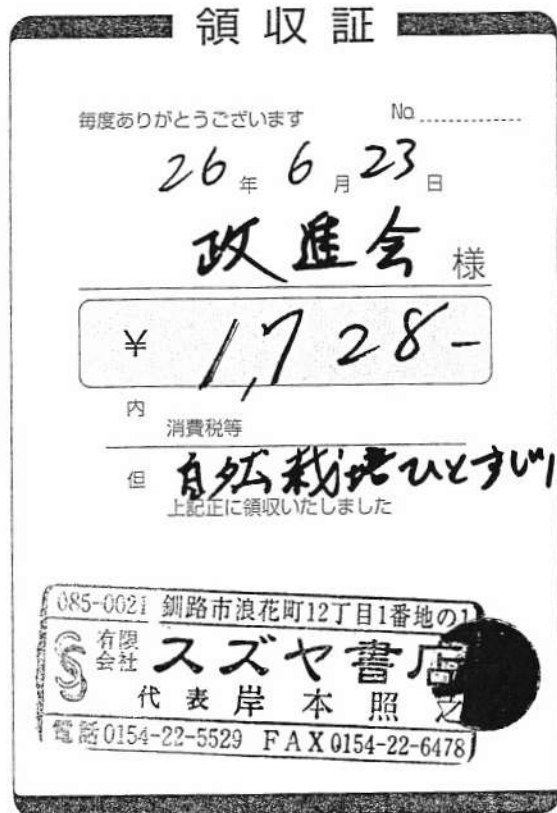 領収証
毎度ありがとうございます No.
26年6月23日
政進会 様
¥1,728-
内 消費税等
但 自然栽培ひとすじに
上記正に領収いたしました
085-0021 釧路市浪花町12丁目1番地の1
有限会社 スズヤ書店
代表 岸本照之
電話0154-22-5529 FAX0154-22-6478